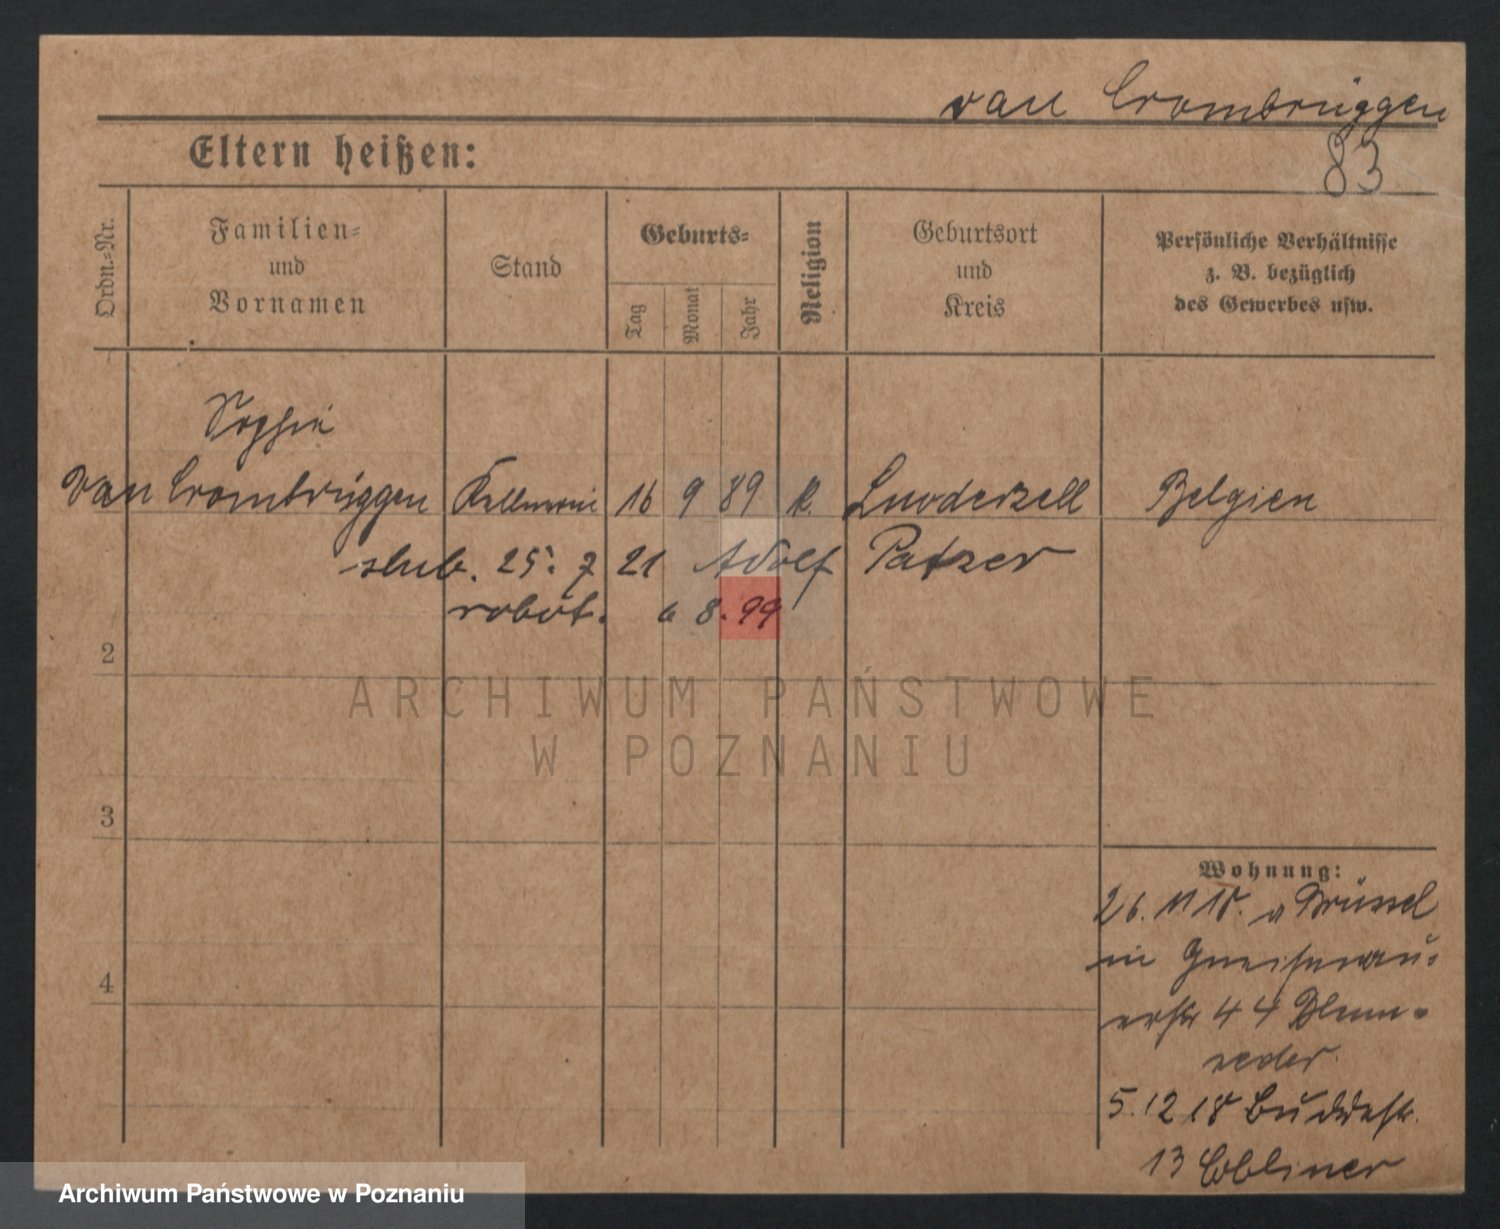 van Crombrüggen
83
Eltern heißen:
Ordn.=Nr.
Familien=
und
Vornamen
Stand
Geburts=
Tag
Monat
Jahr
Religion
Geburtsort
und
Kreis
Persönliche Verhältnisse
z. B. bezüglich
des Gewerbes usw.
Sophie
van Crombrüggen Kellnerin 16 9 89 k. Belgien
ślub. 25. 7 21 Adolf Patzer
robot. 6 8.99
2
ARCHIWUM PAŃSTWOWE
W POZNANIU
3
Wohnung:
26. 11 18. v Brüssel
in Gneisenau=
4
44
5. 12 18 Buddestr.
13
Archiwum Państwowe w Poznaniu